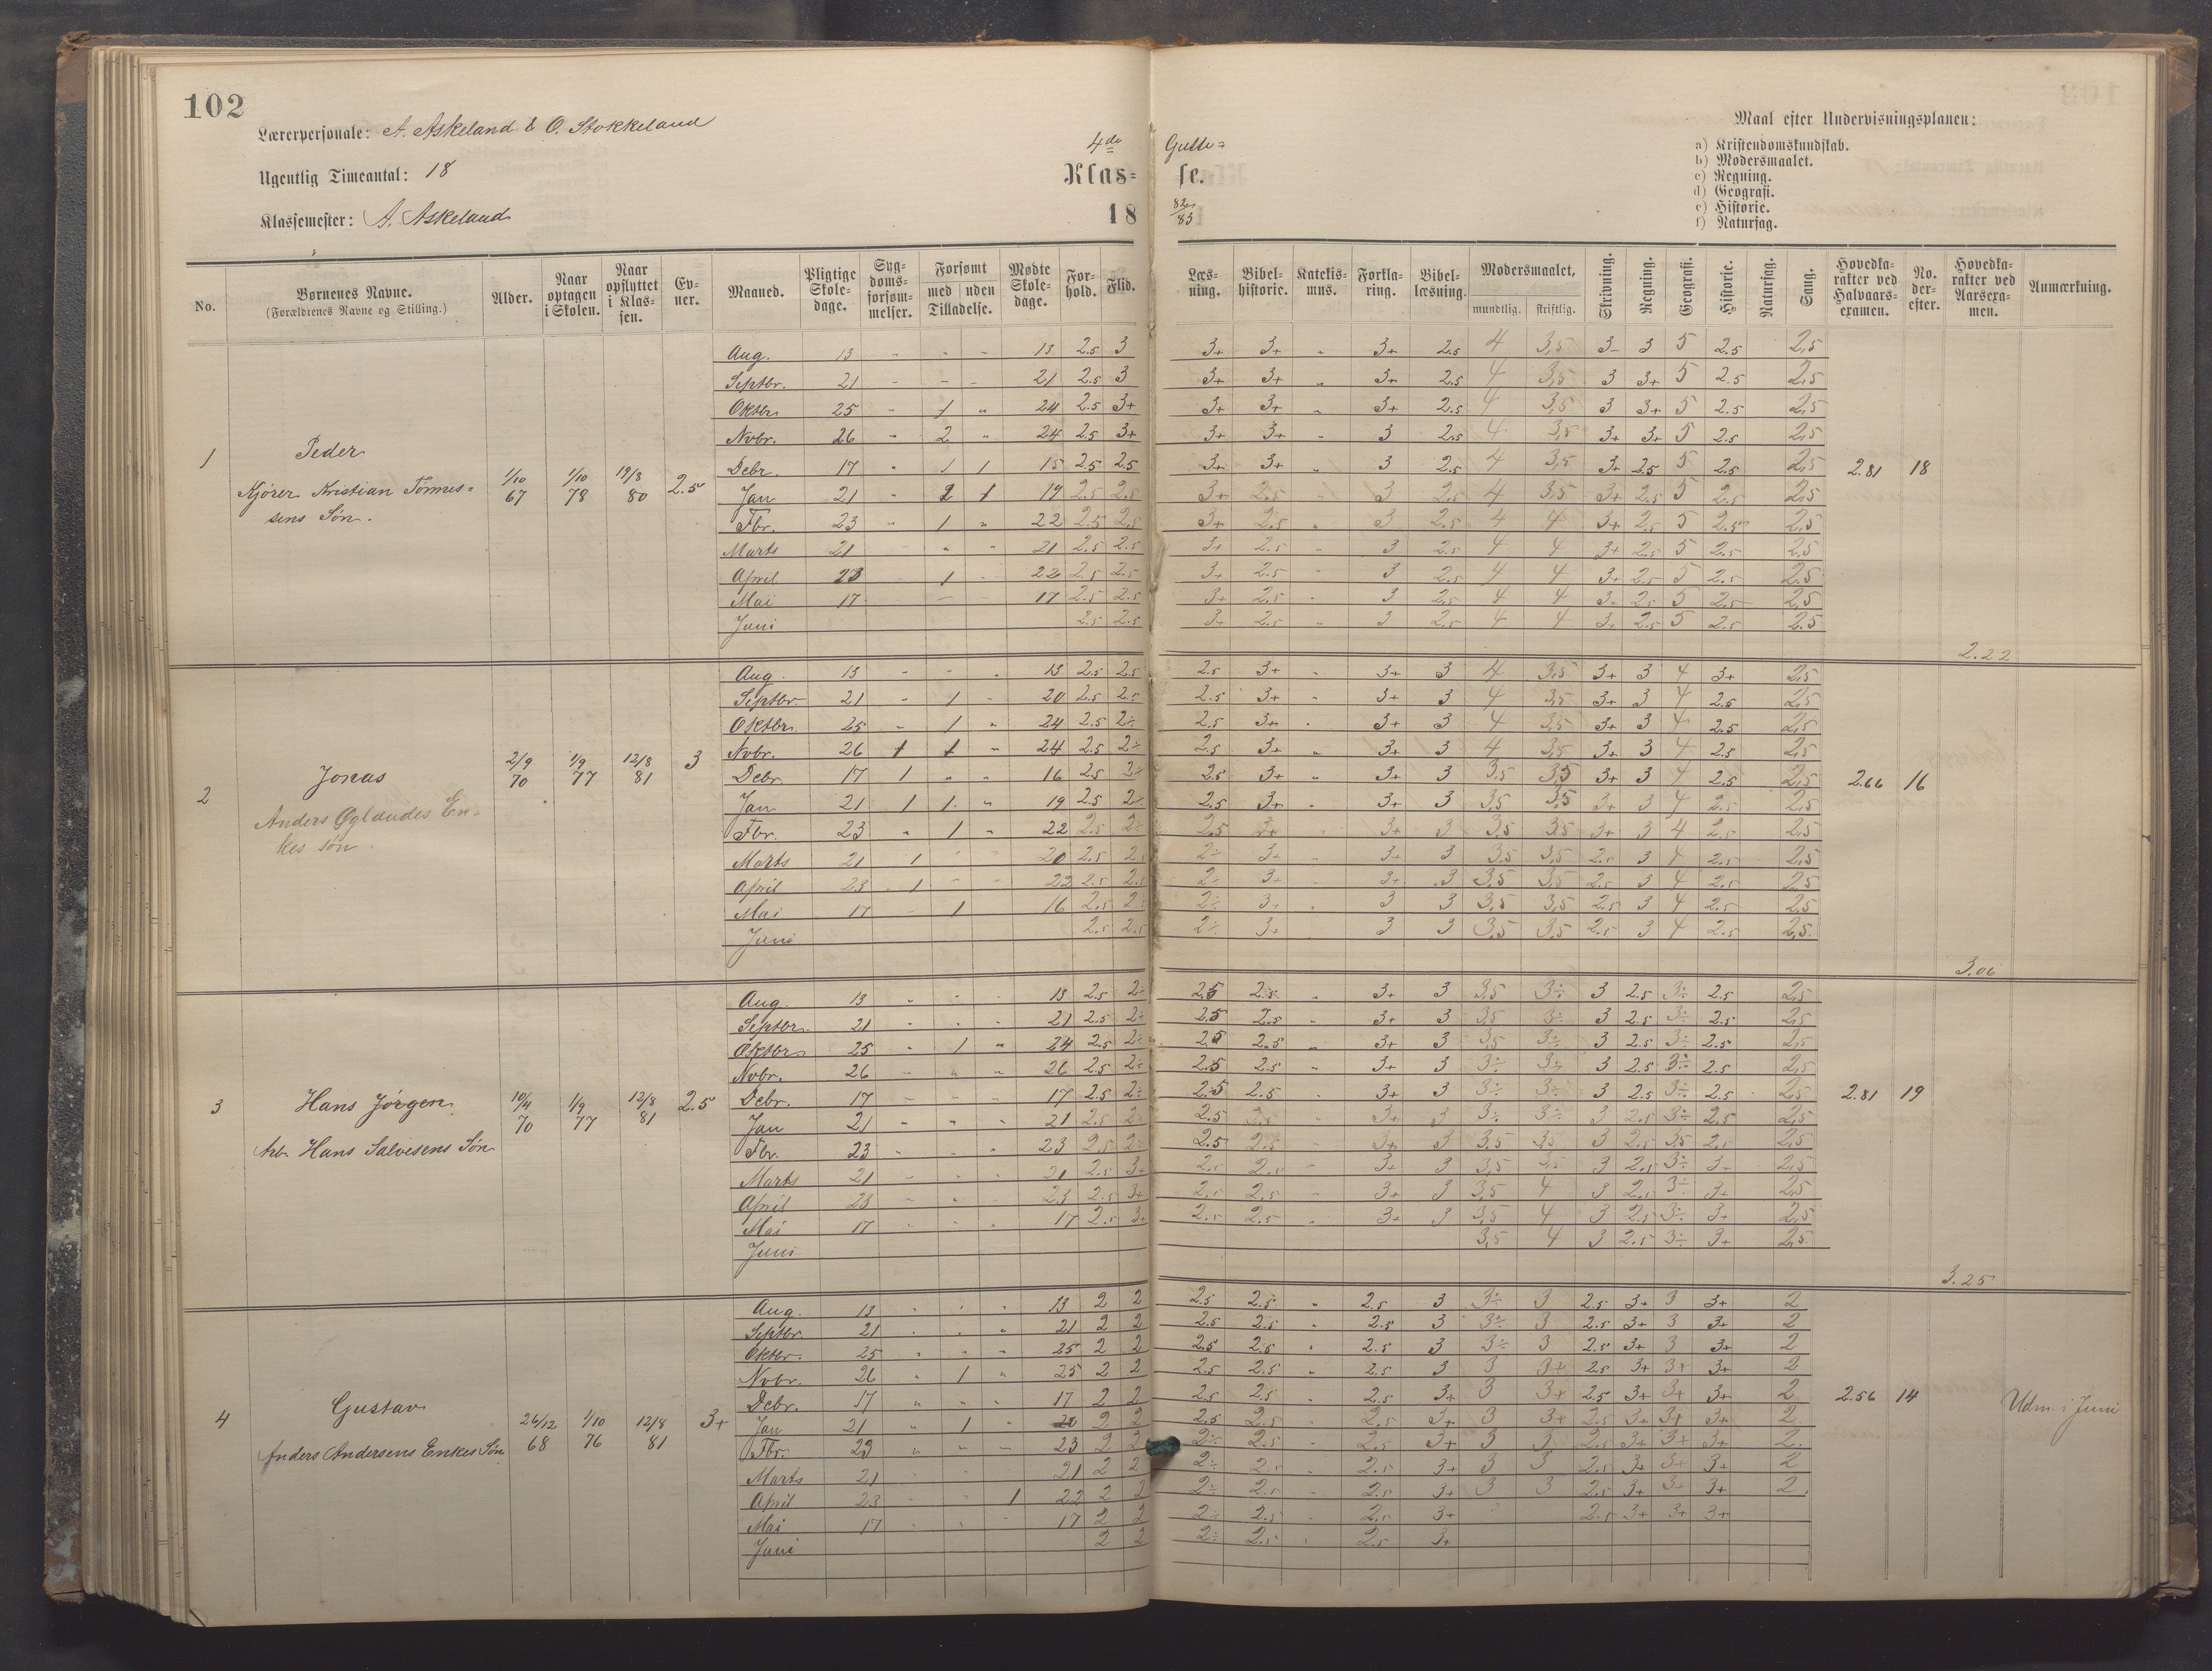 102
Lærerpersonale: A. Askeland & O. Stokkeland
Ugentlig Timeantal: 18
Klassemester: A. Askeland
4de Gutte=
Klas= se.
18 82/83
Maal efter Undervisningsplanen:
a) Kristendomskundskab.
b) Modersmaalet.
c) Regning.
d) Geografi.
e) Historie.
f) Naturfag.
No. | Børnenes Navne. (Forældrenes Navne og Stilling.) | Alder. | Naar optagen i Skolen. | Naar opflyttet i Klassen. | Evner. | Maaned. | Pligtige Skoledage. | Sygdomsforsømmelser. | Forsømt med uden Tilladelse. | Mødte Skoledage. | Forhold. | Flid. | Læsning. | Bibelhistorie. | Katekismus. | Forklaring. | Bibellæsning. | Modersmaalet, mundtlig. skriftlig. | Skrivning. | Regning. | Geografi. | Historie. | Naturfag. | Sang. | Hovedkarakter ved Halvaarsexamen. | No. derefter. | Hovedkarakter ved Aarsexamen. | Anmærkning.
1 Peder
Kjører Kristian Tønnes=
sens Søn.
1/10 67 1/10 78 19/8 80 2.5
Aug. 13 - - - 13 2.5 3 3+ 3+ " 3+ 2.5 4 3,5 3- 3 5 2.5 2,5
Septbr. 21 - - - 21 2.5 3 3+ 3+ " 3+ 2.5 4 3,5 3 3+ 5 2.5 2,5
Oktbr. 25 - 1 " 24 2.5 3+ 3+ 3+ " 3+ 2.5 4 3,5 3 3+ 5 2.5 2,5
Nvbr. 26 " 2 " 24 2.5 3+ 3+ 3+ " 3 2.5 4 3,5 3+ 3+ 5 2.5 2,5
Debr. 17 " 1 1 15 2.5 2.5 3+ 3+ " 3 2.5 4 3,5 3+ 2.5 5 2.5 2,5
2.81 18
Jan 21 - 2 1 19 2.5 2.5 3+ 2.5 3 2.5 4 3,5 3+ 2.5 5 2.5 2,5
Fbr. 23 " 1 " 22 2.5 2.5 3+ 2.5 " 3 2.5 4 4 3+ 2.5 5 2.5 2,5
Marts 21 - " " 21 2.5 2.5 3+ 2.5 - 3 2.5 4 4 3+ 2.5 5 2.5 2,5
April 23 - 1 - 22 2.5 2.5 3+ 2.5 3 2.5 4 4 3+ 2.5 5 2.5 2,5
Mai 17 - - 17 2.5 2.5 3+ 2.5 - 3 2.5 4 4 3+ 2.5 5 2.5 2,5
Juni 2.5 2.5 3+ 2.5 " 3 2.5 4 4 3+ 2.5 5 2.5 2.5
2.22
2 Jonas
Anders Øglændes En=
kes søn.
2/9 70 1/9 77 12/8 81 3
Aug. 13 - - . 13 2.5 2.5 2.5 3+ - 3+ 3 4 3,5 3+ 3 4 3+ 2,5
Septbr. 21 - 1 - 20 2.5 2.5 2.5 3+ - 3+ 3 4 3,5 3+ 3 4 2.5 2,5
Oktbr. 25 " 1 " 24 2.5 2÷ 2.5 3+ . 3+ 3 4 3,5 3+ 3 4 2.5 2,5
Nvbr. 26 1 1 " 24 2.5 2÷ 2.5 3+ " 3+ 3 4 3,5 3+ 3 4 2.5 2,5
Debr. 17 1 " " 16 2.5 2÷ 2.5 3+ " 3+ 3 3,5 3,5 3+ 3 4 2.5 2,5
2.66 16
Jan 21 1 1 " 19 2.5 2÷ 2.5 3+ . 3+ 3 3,5 3,5 3+ 3 4 2.5 2,5
Fbr. 23 " 1 " 22 2.5 2÷ 2.5 3+ 3+ 3 3,5 3,5 3+ 3 4 2.5 2,5
Marts 21 1 - - 20 2.5 2.5 2÷ 3+ - 3+ 3 3,5 3,5 2.5 3 4 2.5 2,5
April 23 1 - - 22 2.5 2.5 2÷ 3+ - 3+ 3 3,5 3,5 2.5 3 4 2.5 2,5
Mai 17 - 1 16 2.5 2.5 2÷ 3+ . 3 3 3,5 3,5 2.5 3 4 2.5 2,5
Juni 2.5 2.5 2÷ 3+ 3 3 3,5 3,5 2.5 3 4 2.5 2,5
3.06
3 Hans Jørgen
Arb. Hans Salvesens Søn
10/4 70 1/9 77 12/8 81 2.5
Aug. 13 " - - 13 2.5 2÷ 2.5 2.5 " 3+ 3 3,5 3÷ 3 2.5 3÷ 2.5 2,5
Septbr. 21 - - . 21 2.5 2÷ 2.5 2.5 - 3+ 3 3,5 3÷ 3 2.5 3÷ 2.5 2,5
Oktbr. 25 " 1 " 24 2.5 2÷ 2.5 2.5 " 3+ 3 3,5 3÷ 3 2.5 3÷ 2.5 2,5
Nvbr. 26 " " " 26 2.5 2÷ 2.5 2.5 " 3+ 3 3÷ 3÷ 3 2.5 3÷ 2.5 2,5
Debr. 17 - - - 17 2.5 2÷ 2.5 2.5 . 3+ 3 3÷ 3÷ 3 2.5 3÷ 2.5 2,5
2.81 19
Jan 21 " " " 21 2.5 2÷ 2.5 2.5 - 3+ 3 3÷ 3÷ 3 2.5 3÷ 2.5 2,5
Fbr. 23 " " " 23 2.5 2÷ 2.5 2.5 - 3+ 3 3,5 3,5 3 2.5 3,5 2.5 2,5
Marts 21 - - . 21 2.5 3+ 2.5 2.5 - 3+ 3 3,5 3,5 3 2.5 3÷ 3+ 2,5
April 23 - " - 23 2.5 3+ 2.5 2.5 - 3+ 3 3,5 4 3 2.5 3÷ 3+ 2,5
Mai 17 - - . 17 2.5 3+ 2.5 2.5 . 3+ 3 3,5 4 3 2.5 3÷ 3+ 2,5
Juni 3,5 4 3 2.5 3÷ 3+ 2,5
3.25
4 Gustav
Anders Andersens Enkes Søn
26/12 68 1/10 76 12/8 81 3+
Aug. 13 . . . 13 2 2 2.5 2.5 " 2.5 3 3÷ 3 2.5 3+ 3 3+ 2
Septbr. 21 . . " 21 2 2 2.5 2.5 . 2.5 3 3÷ 3 2.5 3+ 3 3+ 2
Oktbr. 25 " " " 25 2 2 2.5 2.5 . 2.5 3 3÷ 3 2.5 3+ 3 3+ 2
Nvbr. 26 " 1 " 25 2 2 2.5 2.5 " 2.5 3 3 3+ 2.5 3+ 3+ 3+ 2
Debr. 17 " " " 17 2 2 2.5 2.5 . 2.5 3+ 3 3+ 2.5 3+ 3+ 3+ 2
2.56 14 Udm. i Juni
Jan 21 " 1 " 20 2 2 2.5 2.5 - 2.5 3+ 3 3+ 2.5 3+ 3+ 3+ 2
Fbr. 23 " " - 23 2 2 2÷ 2.5 - 2.5 3+ 3 3 2.5 3+ 3+ 3+ 2
Marts 21 - - 21 2 2 2÷ 2.5 . 2.5 3+ 3 3 2.5 3+ 3+ 3+ 2
April 23 - - 1 22 2 2 2÷ 2.5 - 2.5 3+ 3 3 2.5 3+ 3+ 3+ 2
Mai 17 . . - 17 2 2 2÷ 2.5 . 2.5 3+ 2.5 3+ 3+ 3+
Juni 2 2 2÷ 2.5 . 2.5 3+